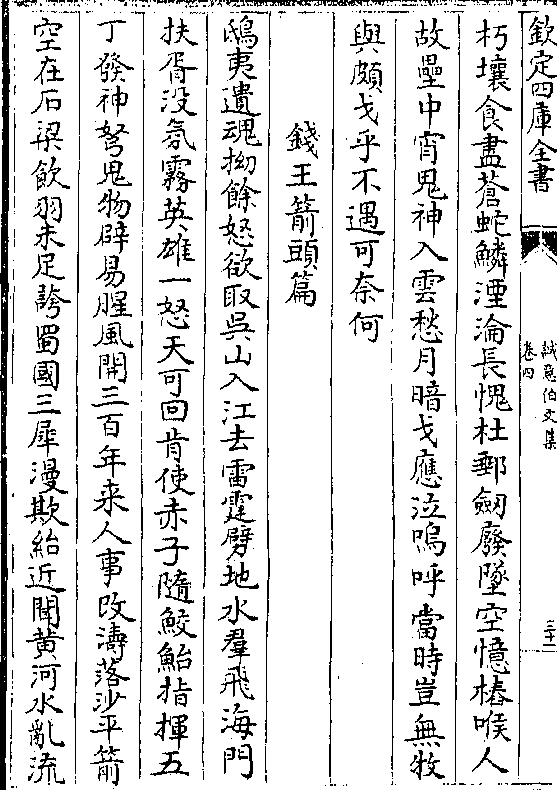 欽定四庫全書
誠意伯文集
卷四
三十二
朽壤食盡蒼蛇鱗湮淪長愧杜郵劒廢墜空憶樁喉人
故壘中宵鬼神入雲愁月暗戈應泣嗚呼當時豈無牧
與頗戈乎不遇可奈何
錢王箭頭篇
鴟夷遺魂拗餘怒欲取吳山入江去雷霆劈地水羣飛海門
扶胥没氛霧英雄一怒天可回肯使赤子隨鮫鮐指揮五
丁發神弩鬼物辟易腥風開三百年来人事改濤落沙平箭
空在石梁飲羽未足誇蜀國三犀漫欺紿近聞黄河水亂流